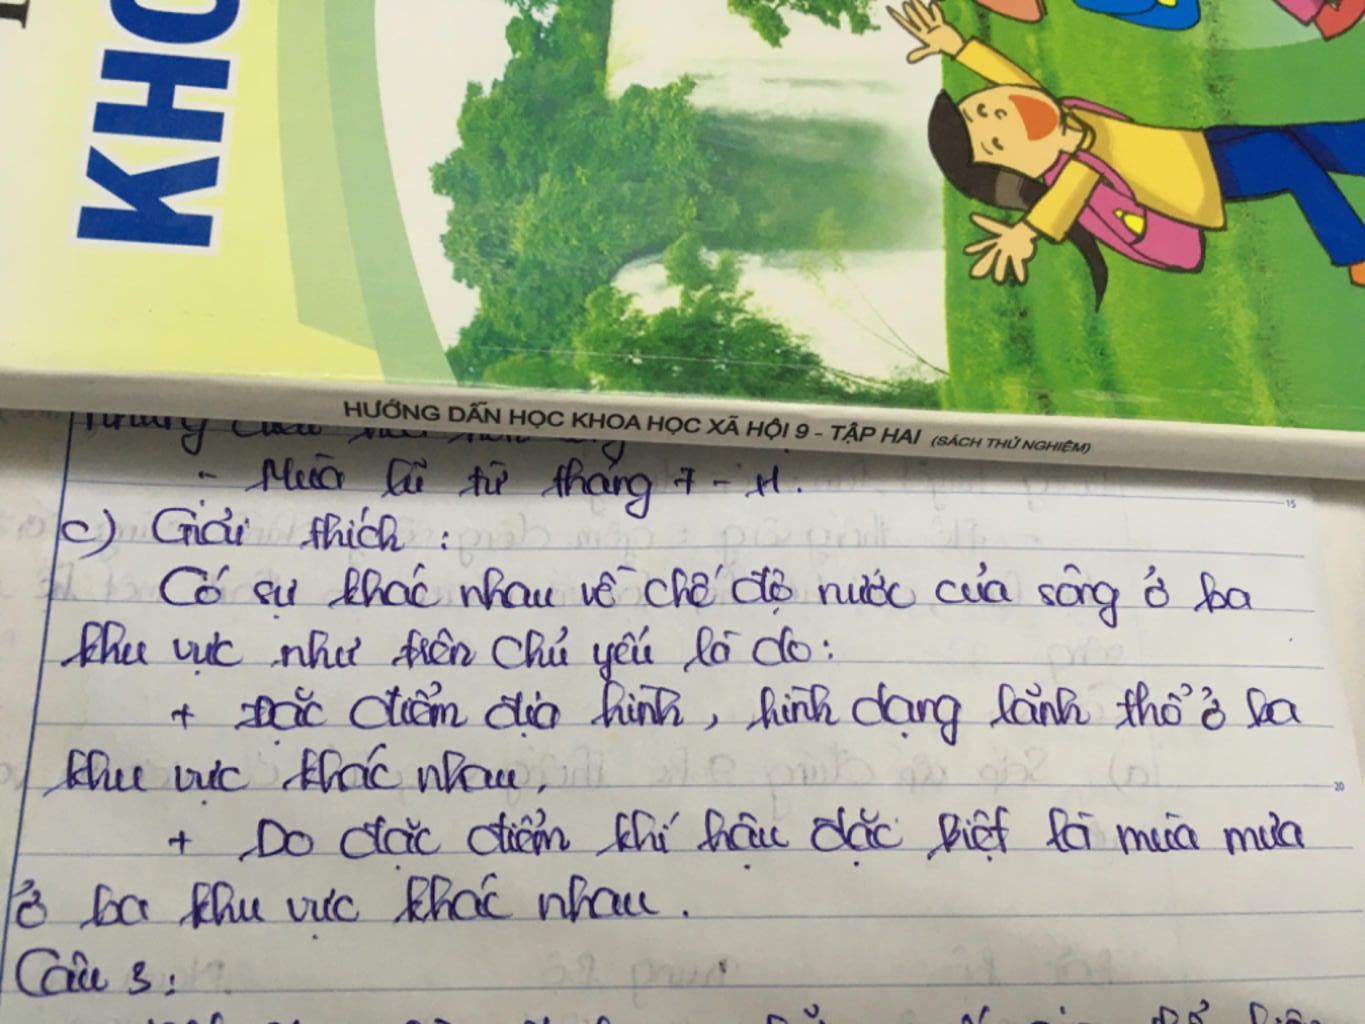 KHO
HƯỚNG DẪN HỌC KHOA HỌC XÃ HỘI 9 - TẬP HAI (SÁCH THỬ NGHIỆM)
- Mùa lũ từ tháng 7 - 11.
15
c) Giải thích :
Có sự khác nhau về chế độ nước của sông ở ba
khu vực như trên chủ yếu là do:
+ Đặc điểm địa hình, hình dạng lãnh thổ ở ba
khu vực khác nhau.
20
+ Do đặc điểm khí hậu đặc biệt là mùa mưa
ở ba khu vực khác nhau.
Câu 3: